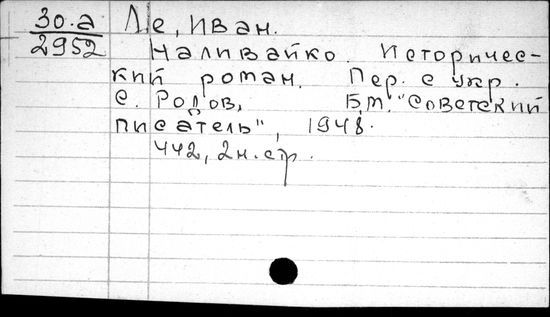 30.а Ле, Иван.
2952
Наливайко. Историчес-
кий роман. Пер. с укр.
С. Родов, Б.М. "Советский
писатель", 1948.
442, 2 н. стр.